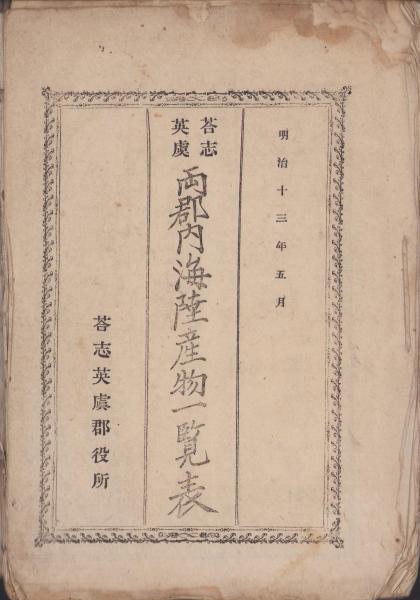 明治十三年五月
答志
英虞
両郡内海陸産物一覧表
答志英虞郡役所